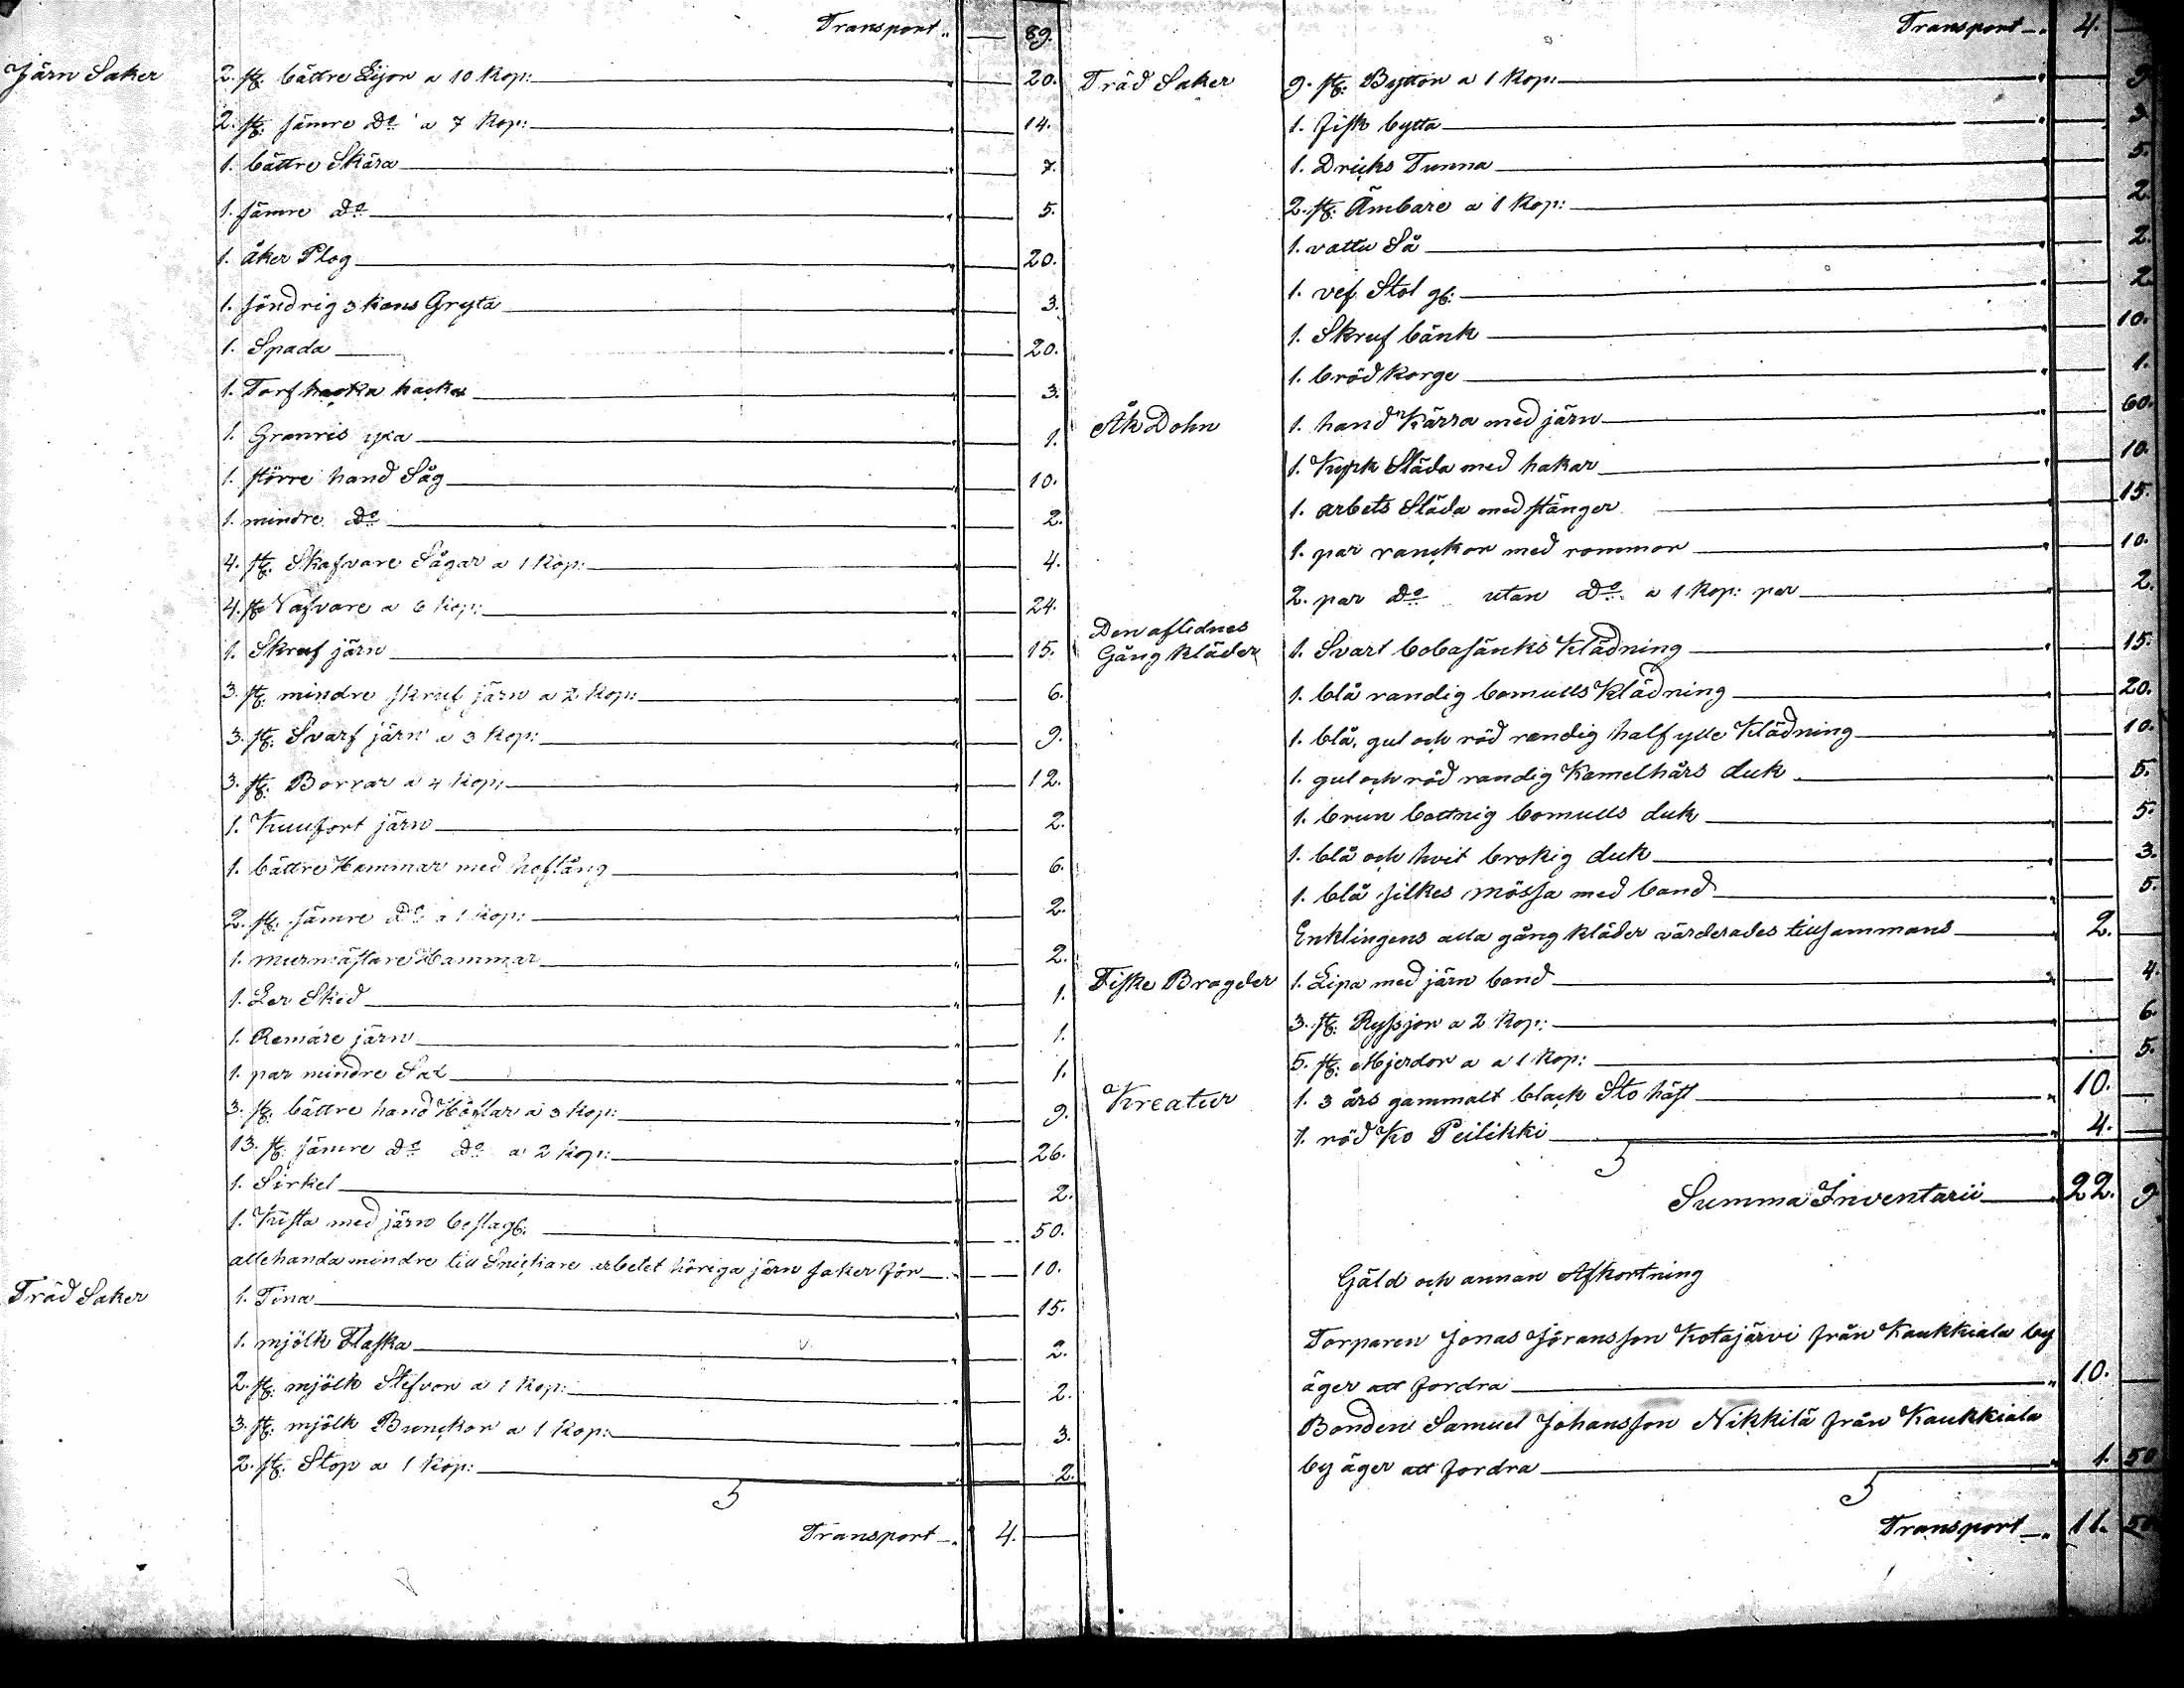 Transport „ — 89.
Järn Saker 2. st. bättre Lijor a 10 Kop: „ — 20.
2. st. sämre Do a 7 Kop: „ — 14.
1. bättre Skära „ — 7.
1. sämre Do „ — 5.
1. åker Plog „ — 20.
1. söndrig 3 kans Gryta „ — 3.
1. Spada „ — 20.
1. Torf hacka „ — 3.
1. Granris yxa „ — 1.
1. större hand Såg „ — 10.
1. mindre Do „ — 2.
4. st. Skafvare Sågar a 1 Kop: „ — 4.
4. st. Nafvare a 6 Kop: „ — 24.
1. Skruf järn „ — 15.
3. st. mindre skruf järn a 2 Kop: „ — 6.
3. st. Svarf järn a 3 Kop: „ — 9.
3. st. Borrar a 4 Kop: „ — 12.
1. järn „ — 2.
1. bättre Hammar med hoftång „ — 6.
2. st. sämre Do a 1 Kop: „ — 2.
1. murmästare Hammar „ — 2.
1. Ler Sked „ — 1.
1. Remare järn „ — 1.
1. par mindre Sax „ — 1.
3. st. bättre hand Höflar a 3 Kop: „ — 9.
13. st. sämre Do Do a 2 Kop: „ — 26.
1. Sirkel „ — 2.
1. Kista med järn beslag „ — 50.
allehanda mindre till Snickare arbetet höriga järn saker för „ — 10.
Träd Saker 1. Tina „ — 15.
1. mjölk Flaska „ — 2.
2. st. mjölk Stefvor a 1 Kop: „ — 2.
3. st. mjölk Bunckor a 1 Kop: „ — 3.
2. st. Stop a 1 Kop: „ — 2.
Transport „ 4. —
Transport „ 4. —
Träd Saker 9. st. Byttor a 1 Kop: „ — 9
1. fisk bytta „ — 3
1. Dricks Tunna „ — 5.
2. st. Ämbare a 1 Kop: „ — 2.
1. vattu Så „ — 2.
1. vef Stol „ — 2.
1. Skruf bänk „ — 10.
1. brödkorge „ — 1.
Åk Dohn 1. hand Kärra med järn „ — 60.
1. Kyrk Släda med hakar „ — 10.
1. arbets Släda med stänger „ — 15.
1. par ranckor med rommor „ — 10.
2. par Do utan Do a 1 Kop: par „ — 2.
Den aflidnes
Gång kläder 1. Svart bobasänks Klädning „ — 15.
1. blå randig bomulls Klädning „ — 20.
1. blå, gul och röd randig half ylle Klädning „ — 10.
1. gul och röd randig Kamelhårs duk „ — 5.
1. brun bottnig bomulls duk „ — 5.
1. blå och hvit brokig duk „ — 3.
1. blå silkes mössa med band „ — 5.
Enklingens alla gång kläder värderades tillsammans 2. —
Fiske Bragder 1. Lipa med järn band „ — 4.
3. st. Ryssjor a 2 Kop: „ — 6.
5. st. Mjerdor a a 1 Kop: „ — 5.
Kreatur 1. 3 års gammalt black Sto häst „ 10. —
1. röd Ko Peilikki „ 4. —
Summa Inventarii „ 22. 9
Gäld och annan Afkortning
Torparen Jonas Jöransson Kotajärvi från Kaukkiala by
äger att fordra „ 10. —
Bonden Samuel Johansson Nikkilä från Kaukkiala
by äger att fordra „ 1. 50
Transport „ 11. 50